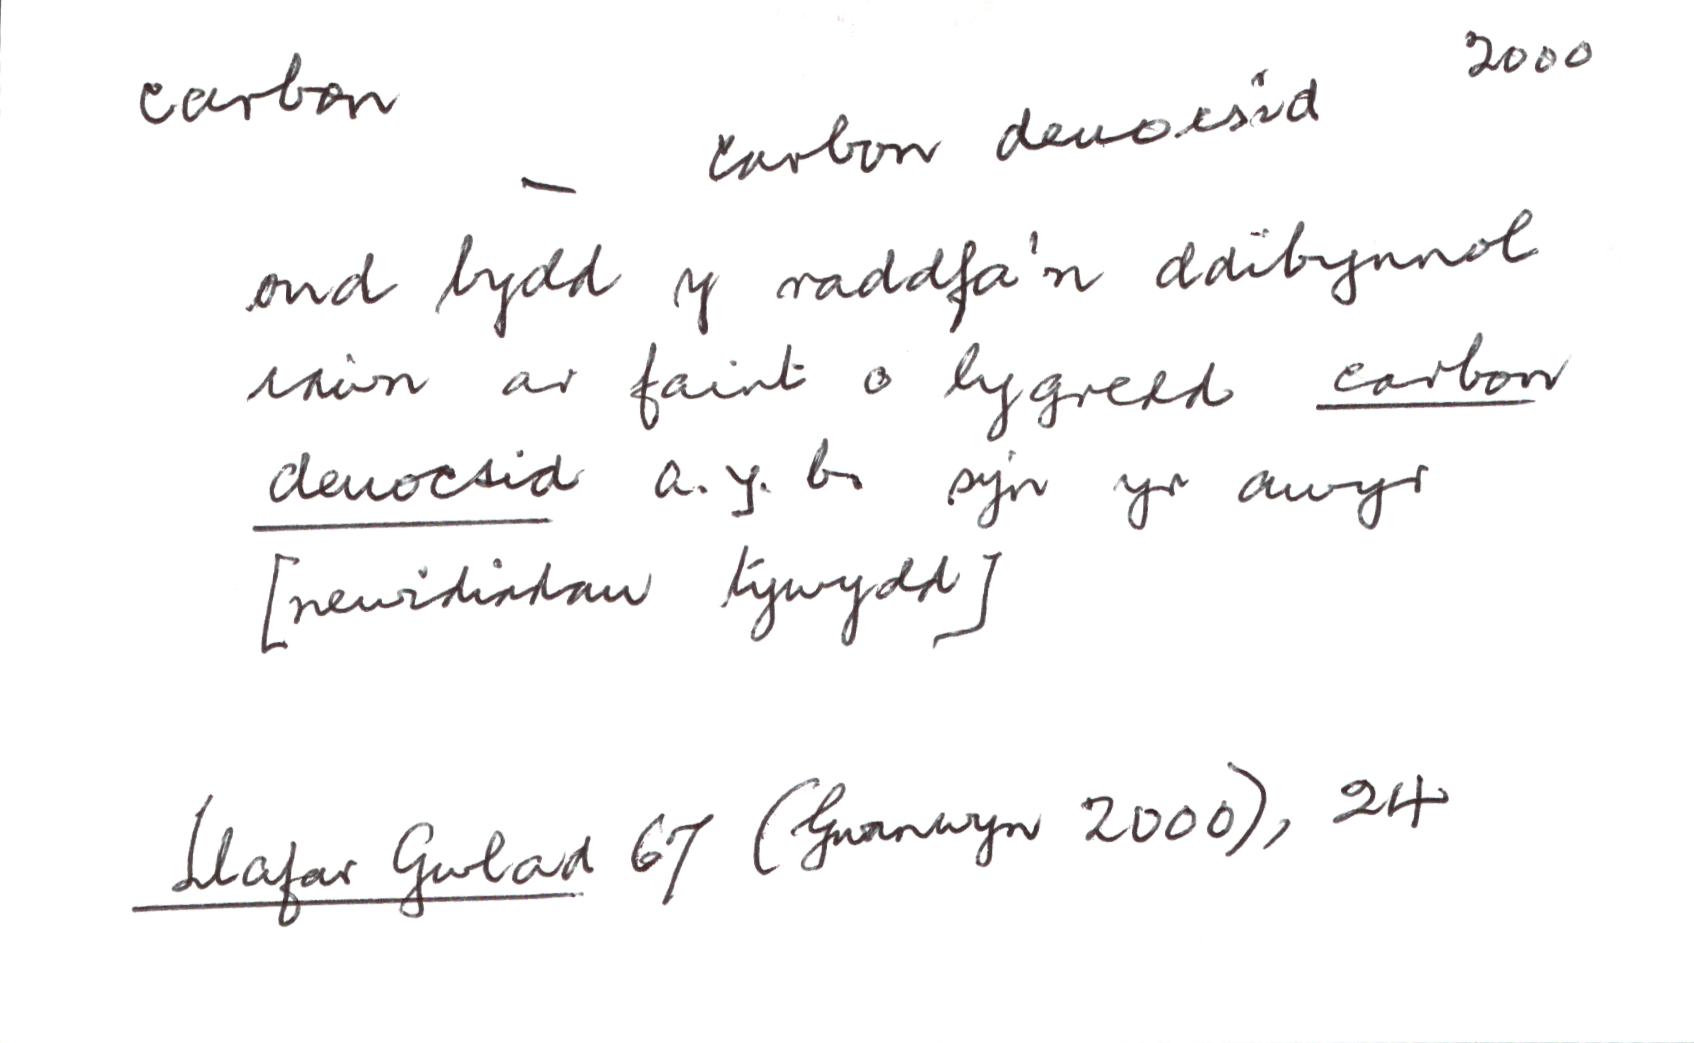 carbon
2000
carbon deuocsid
—
ond bydd y raddfa'n ddibynnol
iawn ar faint o lygredd carbon
deuocsid a.y.b. sy'n yr awyr
[newidiadau tywydd]
Llafar Gwlad 67 (Gwanwyn 2000), 24